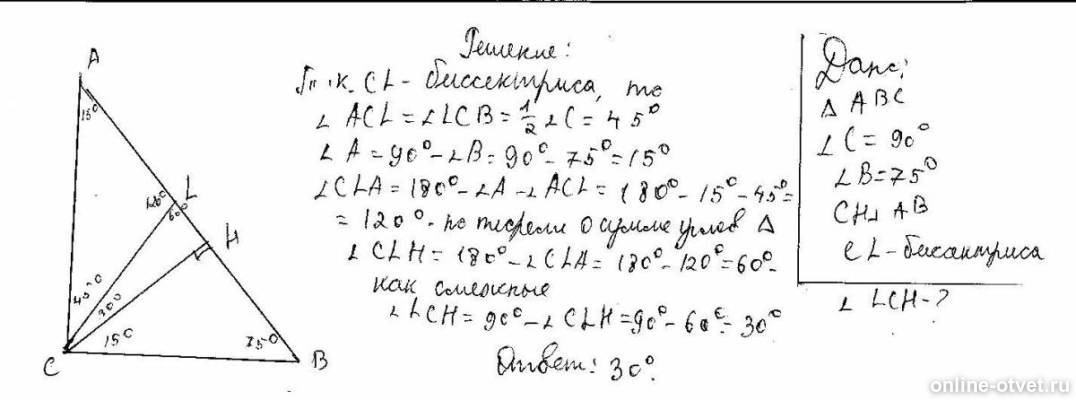 Решение:
Т.к. CL - биссектриса, то
∠ ACL = ∠LCB = 1/2 ∠C = 45°
∠ A = 90° - ∠B = 90° - 75° = 15°
∠CLA = 180° - ∠A - ∠ACL = 180° - 15° - 45° =
= 120° - по теореме о сумме углов Δ
∠ CLH = 180° - ∠CLA = 180° - 120° = 60° -
как смежные
∠ LCH = 90° - ∠CLH = 90° - 60° = 30°
Ответ: 30°.
Дано:
Δ ABC
∠C = 90°
∠B = 75°
CH⊥ AB
CL - биссектриса
∠ LCH - ?
A
15°
120°
60°
L
H
45°
30°
15°
75°
C
B
online-otvet.ru